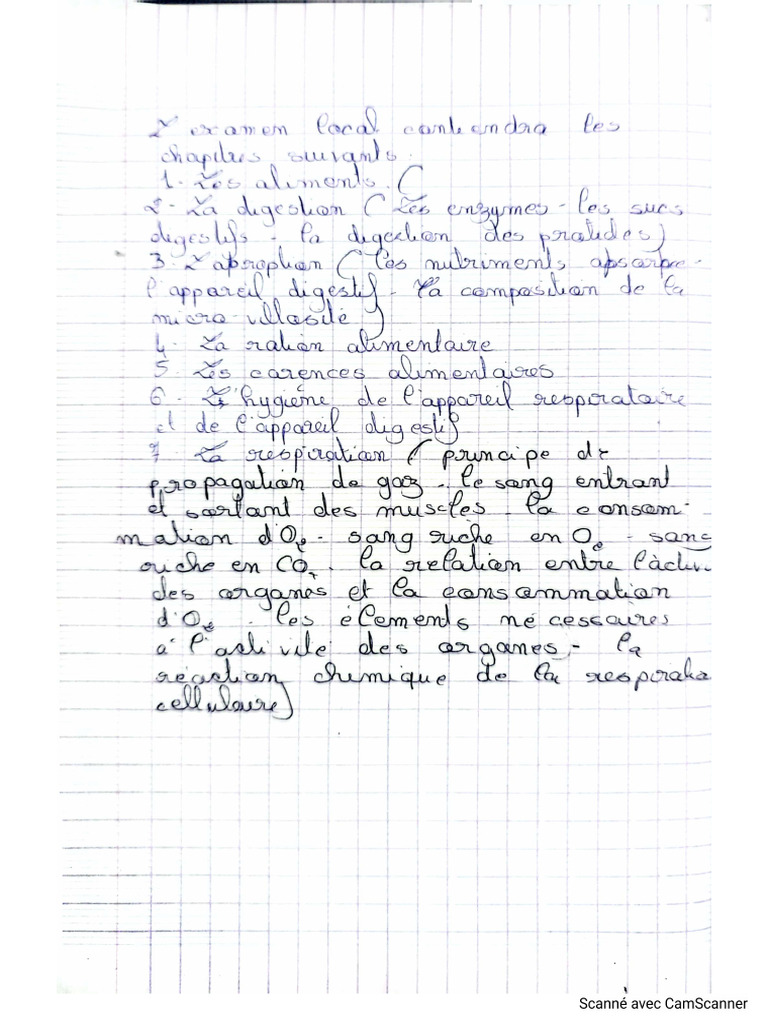 L'examen local contiendra les
chapitres suivants.
1. Les aliments. (
2. La digestion ( Les enzymes - les sucs
digestifs - la digestion des protides)
3. L'absroption ( les nutriments absorpe-
l'appareil digestif - la composition de la
micro-villosité )
4. La ration alimentaire
5. Les carences alimentaires
6. L'hygiène de l'appareil respiratoire
et de l'appareil digestif
7. La respiration ( principe de
propagation de gaz - le sang entrant
et sortant des muscles. la consom-
mation d'O₂ - sang riche en O₂ - sang
riche en CO₂. la relation entre l'activ
des organes et la consommation
d'O₂. les élements nécessaires
à l'activité des organes - la
réaction chimique de la respiratio
cellulaire)
Scanné avec CamScanner